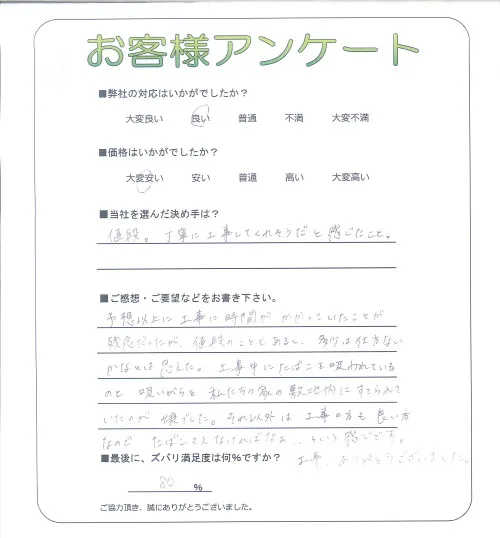 お客様アンケート
■弊社の対応はいかがでしたか？
大変良い 良い 普通 不満 大変不満
■価格はいかがでしたか？
大変安い 安い 普通 高い 大変高い
■当社を選んだ決め手は？
値段。丁寧に工事してくれそうだと感じたこと。
■ご感想・ご要望などをお書き下さい。
予想以上に工事に時間がかかっていたことが
残念だったが、値段のこともあるし、多少は仕方ない
かなとは思えた。工事中にたばこを吸われている
のと吸いがらを私たちの家の敷地内にすてられて
いたのが嫌でした。それ以外は工事の方も良い方
なので たばこさえなければなぁ..という感じです。
工事、ありがとうございました。
■最後に、ズバリ満足度は何%ですか？
80 %
ご協力頂き、誠にありがとうございました。